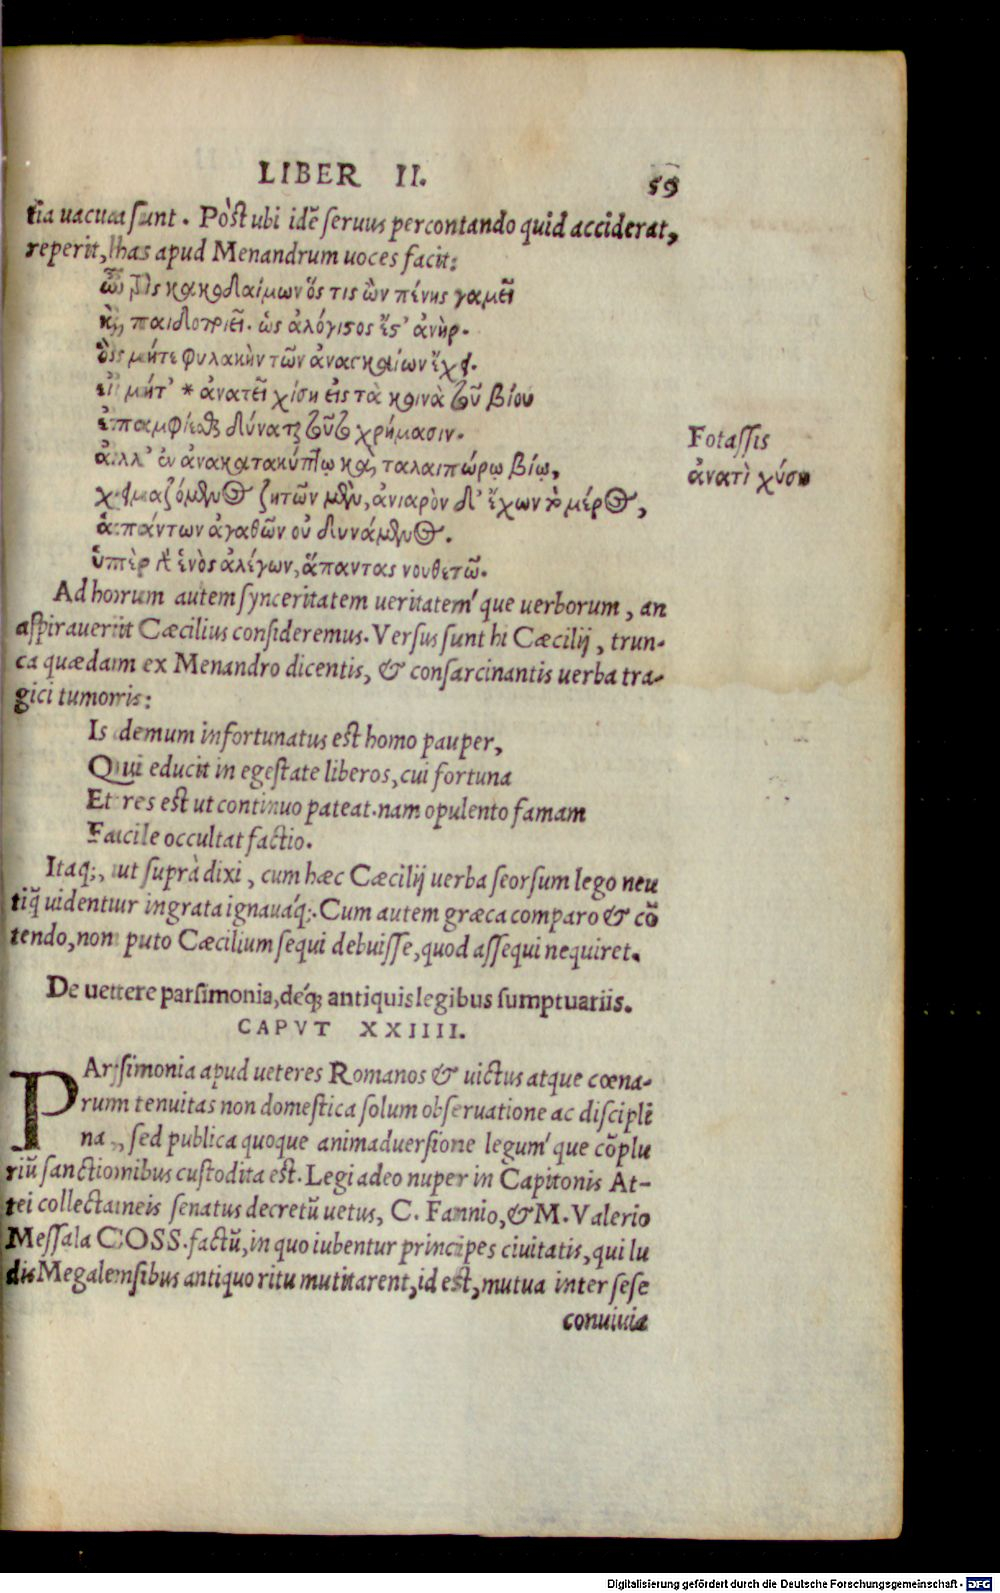 LIBER II. 59
tia uacuaa sunt. Pòst ubi idẽ seruus percontando quid acciderat,
reperit, has apud Menandrum uoces facit:
ὦ τρὶς κακοδαίμων ὅς τις ὢν πένης γαμεῖ
καὶ παιδοτριεῖ. ὡς ἀλόγιστος ἔστ' ἀνὴρ.
ὃς μήτε φυλακὴν τῶν ἀναγκαίων ἔχει.
μήτ' * ἀνατεῖ χίση εἰς τὰ κοινὰ τοῦ βίου
ἐπαμφιέσαι δύναται τοῦτο χρήμασιν.
ἀλλ' ἐν ἀνακατακύπτῳ καὶ ταλαιπώρῳ βίῳ,
χειμαζόμενος ζητῶν μὲν, ἀνιαρὸν δ' ἔχων τὸ μέρος,
ἁπάντων ἀγαθῶν οὐ δυνάμενος.
ὑπὲρ γὰρ ἑνὸς ἀλέγων, ἅπαντας νουθετῶ.
Fotassis
ἀνατὶ χύση
Ad horum autem synceritatem ueritatem'que uerborum, an
aspirauerit Cæcilius consideremus. Versus sunt hi Cæcilij, trun-
ca quædam ex Menandro dicentis, & consarcinantis uerba tra-
gici tumoris:
Is demum infortunatus est homo pauper,
Qui educit in egestate liberos, cui fortuna
Et res est ut continuo pateat. nam opulento famam
Facile occultat factio.
Itaq;, ut suprà dixi, cum hæc Cæcilij uerba seorsum lego neu
tiq̃ uidentur ingrata ignauáq;. Cum autem græca comparo & cõ
tendo, non puto Cæcilium sequi debuisse, quod assequi nequiret.
De uetere parsimonia, déq; antiquis legibus sumptuariis.
CAPVT XXIIII.
PArsimonia apud ueteres Romanos & uictus atque cœna-
rum tenuitas non domestica solum obseruatione ac discipli
na, sed publica quoque animaduersione legum'que cõplu
riũ sanctionibus custodita est. Legi adeo nuper in Capitonis At-
tei collectaneis senatus decretũ uetus, C. Fannio, & M. Valerio
Messala COSS. factũ, in quo iubentur principes ciuitatis, qui lu
dis Megalensibus antiquo ritu mutitarent, id est, mutua inter sese
conuiuia
Digitalisierung gefördert durch die Deutsche Forschungsgemeinschaft - DFG